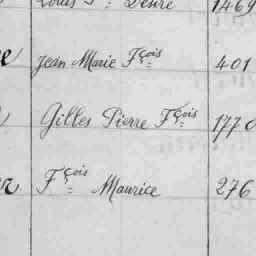 Louis Désiré 1469
Jean Marie Fçois 401
Gilles Pierre Fçois 1770
Fçois Maurice 276